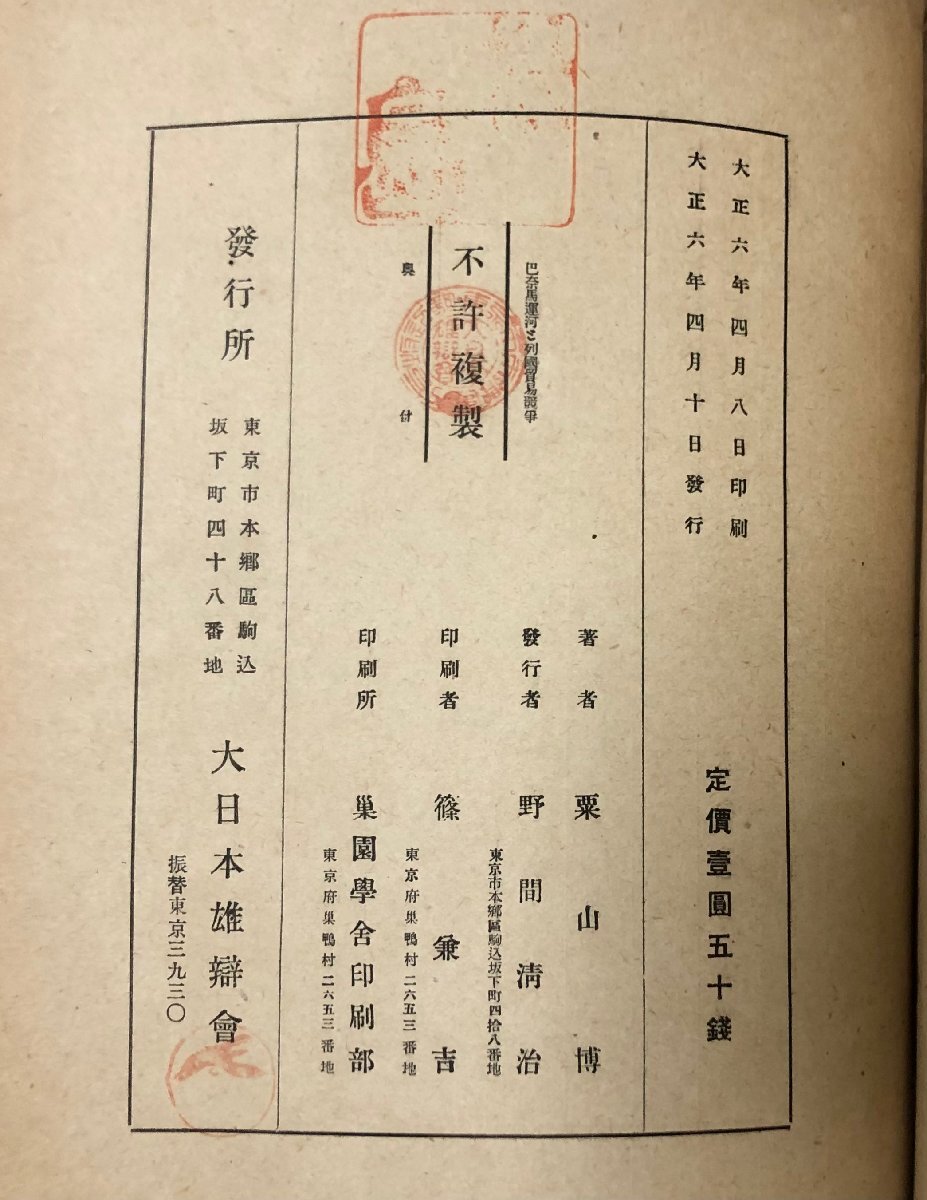 大正六年四月八日印刷
大正六年四月十日發行
定價壹圓五十錢
巴奈馬運河と列國貿易競爭
不許複製
奥付
著者 粟山博
發行者 野間淸治
東京市本鄕區駒込坂下町四拾八番地
印刷者 篠兼吉
東京府巢鴨村二六五三番地
印刷所 巢園學舍印刷部
東京府巢鴨村二六五三番地
發行所
東京市本鄕區駒込
坂下町四十八番地
大日本雄辯會
振替東京三九三〇